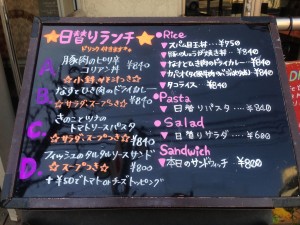 ★日替りランチ★
ドリンク付きます
A. 豚肉のピリ辛
コリアン丼 ¥840
☆小鉢、サラダつき☆
B. なすとひき肉のドライカレー
☆サラダ、スープつき☆ ¥840
C. きのことツナの
トマトソースパスタ
☆サラダ・スープつき☆ ¥840
D. フィッシュのタルタルソースサンド
☆スープつき☆ ¥800
+¥50でトマトorチーズトッピング
Rice
♥スパム目玉丼…¥750
♥豚肉しょうが焼き丼 ¥840
♥なすとひき肉のドライカレー ¥840
¥840
♥タコライス ¥840
Pasta
♥日替りパスタ…¥840
Salad
♥日替りサラダ…¥600
Sandwich
♥本日のサンドウィッチ ¥800